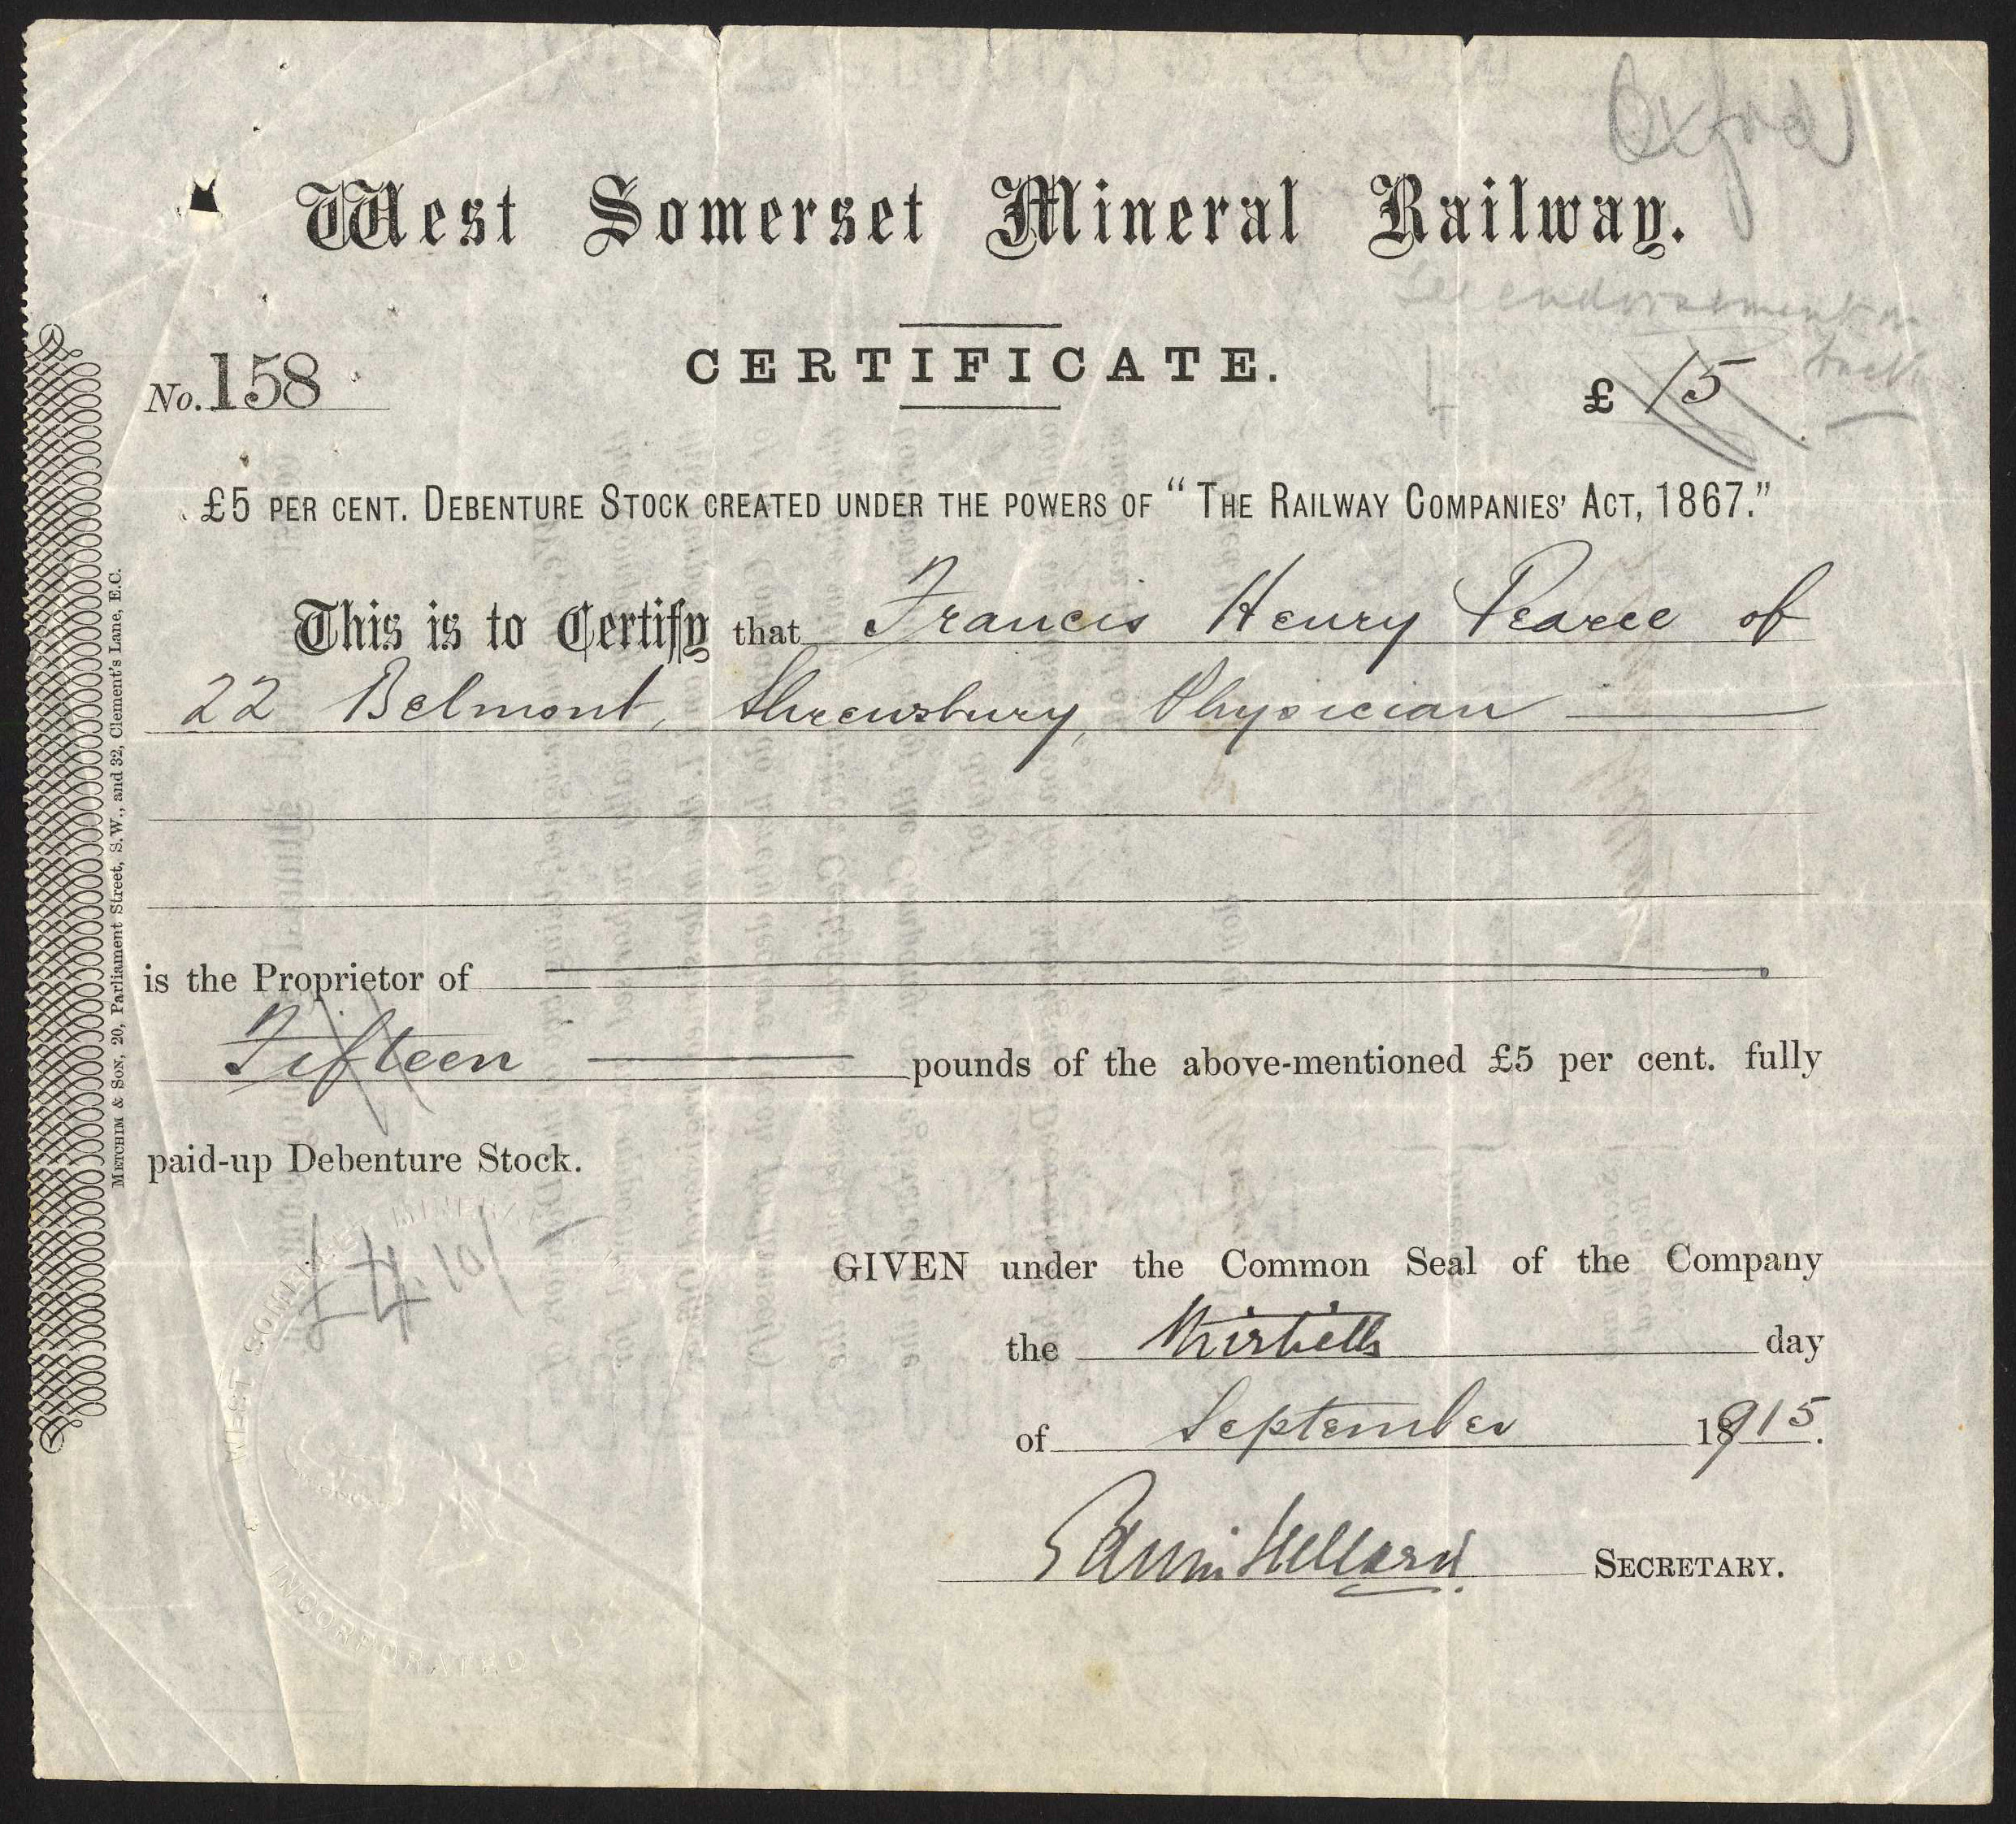 Oxford
West Somerset Mineral Railway.
See endorsement on
back
CERTIFICATE.
No. 158
£ 15
£5 PER CENT. DEBENTURE STOCK CREATED UNDER THE POWERS OF "THE RAILWAY COMPANIES' ACT, 1867."
This is to Certify that Francis Henry Pearce of
22 Belmont, Shrewsbury, Physician
is the Proprietor of
Fifteen pounds of the above-mentioned £5 per cent. fully
paid-up Debenture Stock.
£4.10/-
GIVEN under the Common Seal of the Company
the Thirtieth day
of September 1915.
Edwin Hellard SECRETARY.
METCHIM & SON, 20, Parliament Street, S.W., and 32, Clement's Lane, E.C.
WEST SOMERSET MINERAL
INCORPORATED